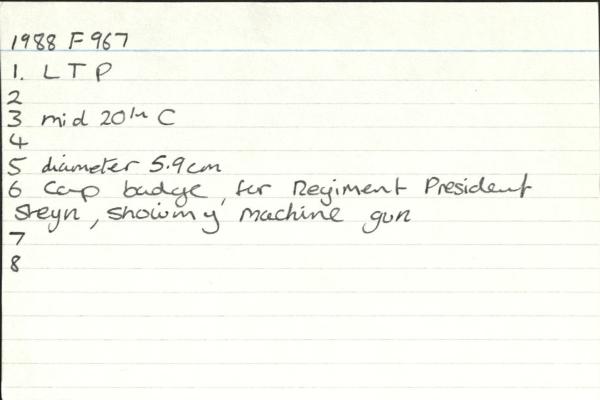 1988 F 967
1. L T P
2
3 mid 20th C
4
5 diameter 5.9cm
6 Cap badge, for Regiment President
Steyn, showing machine gun
7
8